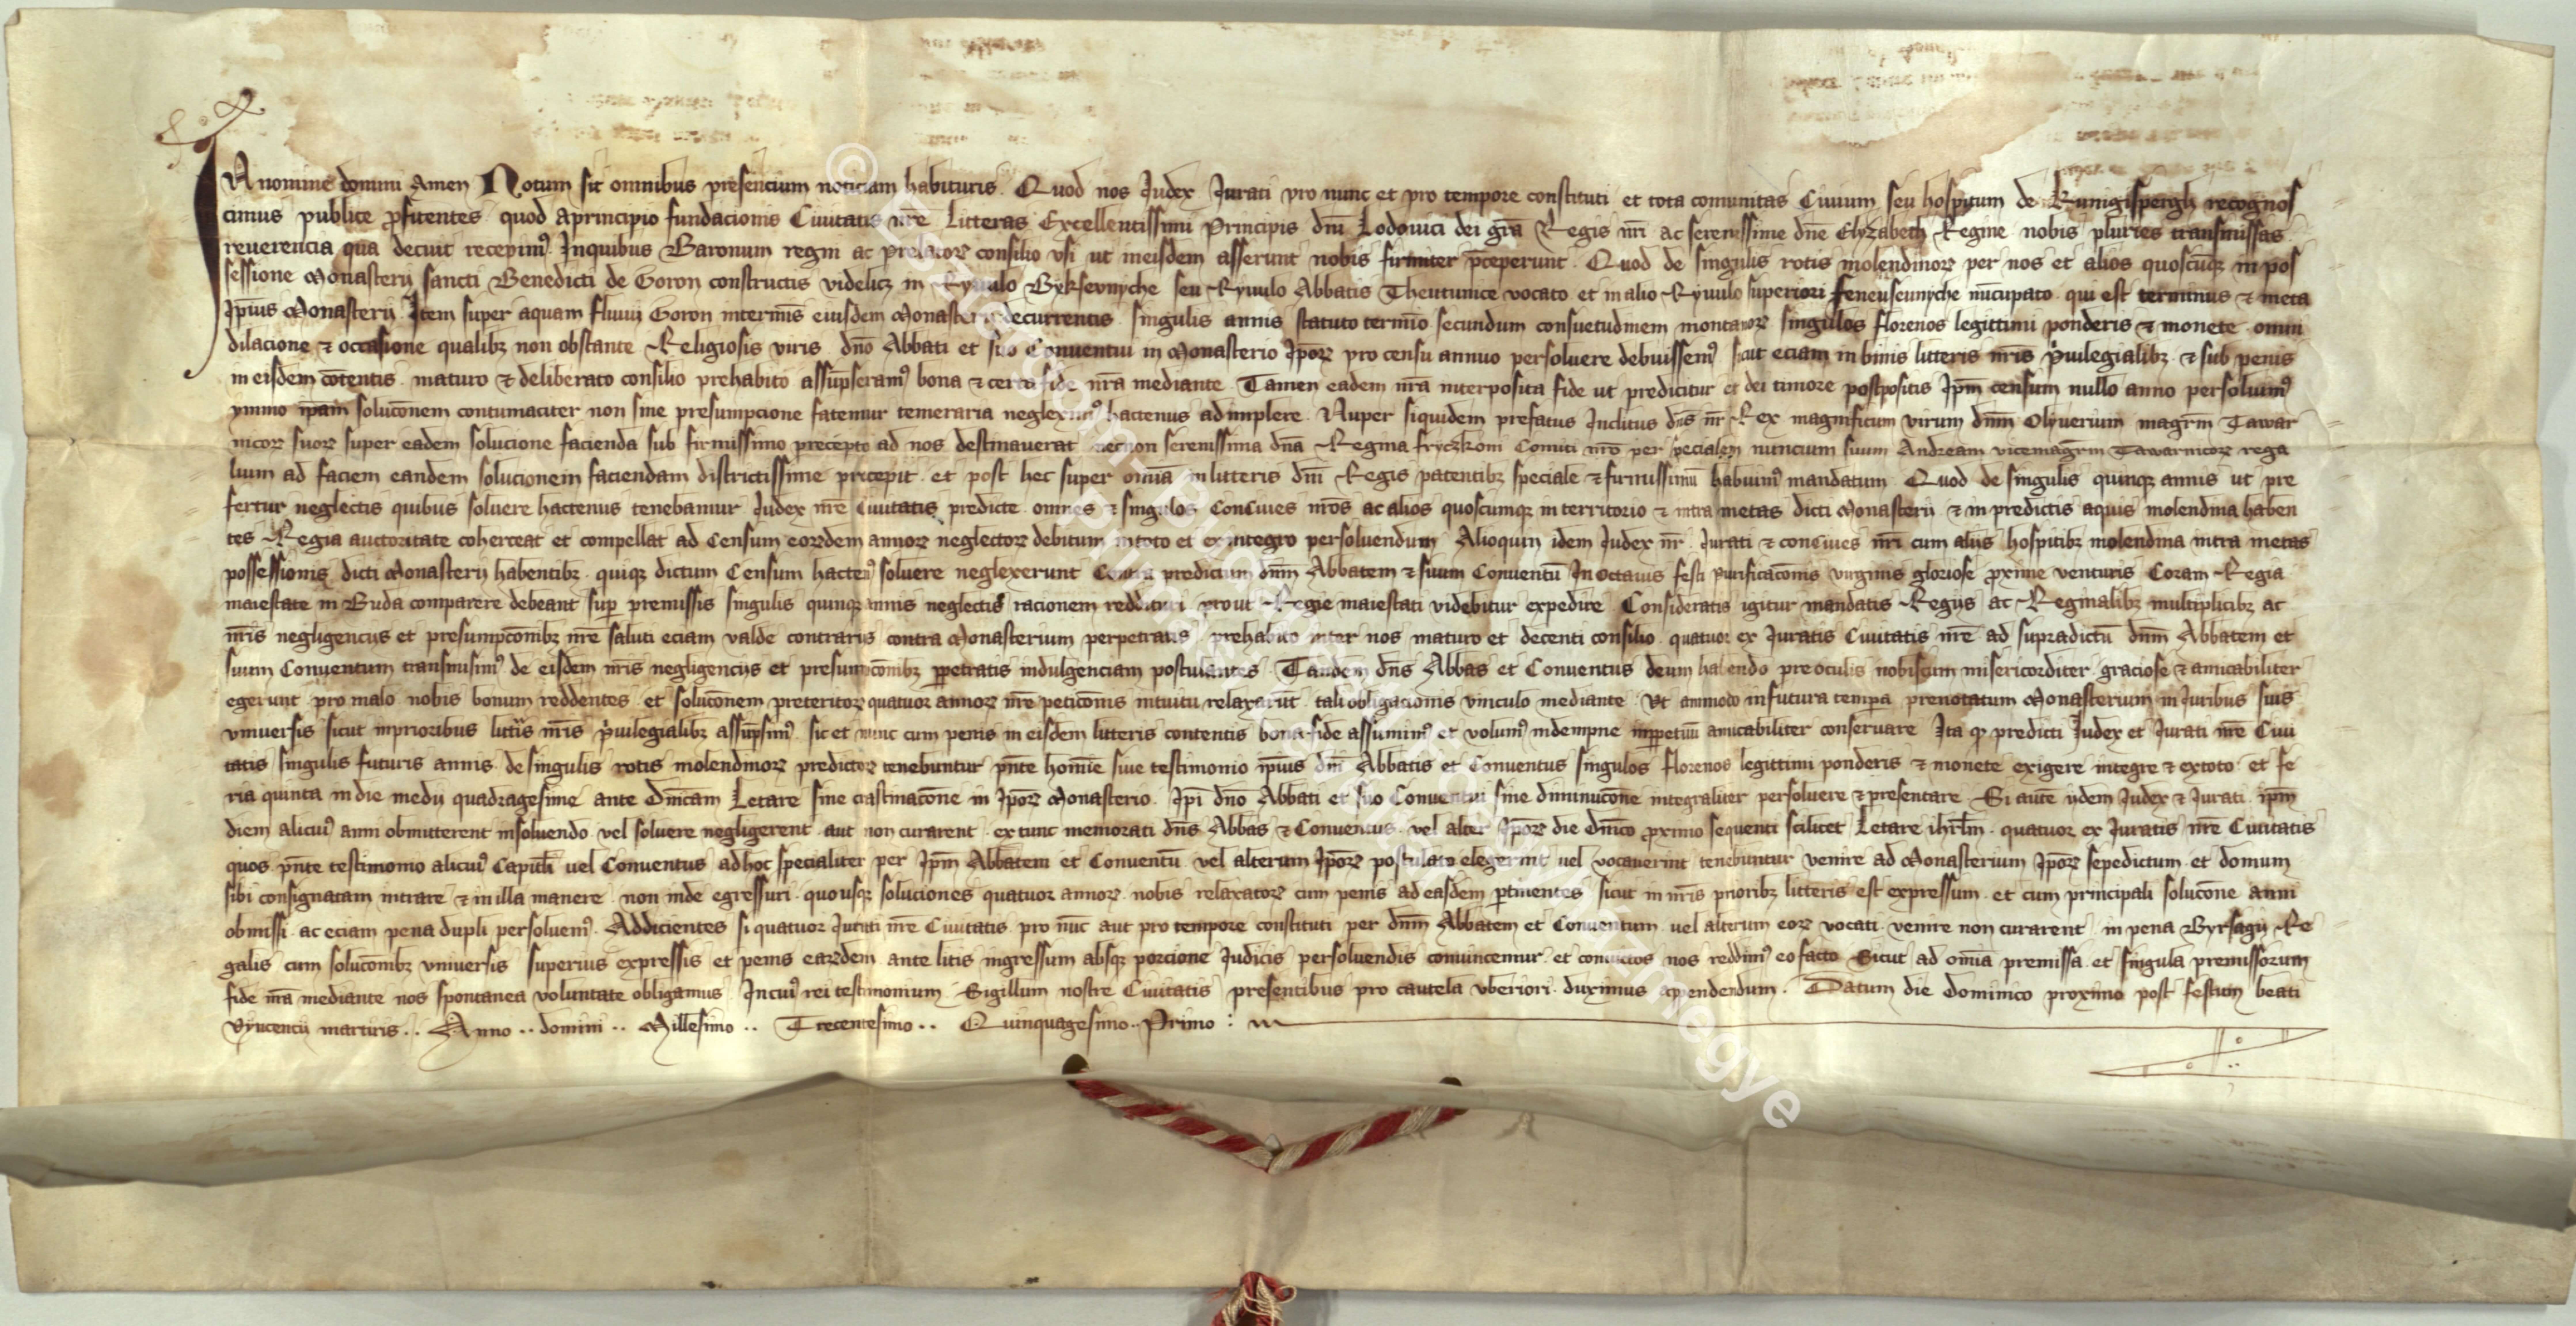 IN nomine domini Amen Notum sit omnibus presencium noticiam habituris. Quod nos Judex Jurati pro nunc et pro tempore constituti et tota comunitas Civium seu hospitum de Kunigispergh recognos
cimus publice ꝓfitentes quod aprincipio fundacionis Civitatis nr̄e Litteras Excellentissimi Principis dn̄i Lodovici dei gr̄a Regis nr̄i ac serenissime dn̄e Elyzabeth Regine nobis pluries transmissas
reverencia qua decuit recepimꝰ. Inquibus Baronum regni ac prelatoꝝ consilio usi ut ineisdem asserunt nobis firmiter p̄ceperunt. Quod de singulis rotis molendinoꝝ per nos et alios quoscūqꝫ in pos
sessione Monasterij sancti Benedicti de Goron constructis videlicꝫ in Ryuulo Bykseunyche seu Ryuulo Abbatis Theutunice vocato et in alio Ryuulo superiori feneuseunyche nūcupato. qui est terminus & meta
Ip̄ius Monasterij. Item super aquam fluuij Goron intermīs eiusdem Monasterij decurrentis singulis annis statuto termīo secundum consuetudinem montanoꝝ singulos florenos legittimi ponderis & monete omni
dilacione & occasione qualibꝫ non obstante Religiosis viris dn̄o Abbati et suo Conuentui in Monasterio Ip̄oꝝ pro censu annuo persoluere debuissemꝰ sicut eciam in binis litteris nr̄is p̄uilegialibꝫ & sub penis
in eisdem cōtentis maturo & deliberato consilio prehabito assūpseramꝰ bona & certa fide nr̄a mediante. Tamen eadem nr̄a interposita fide ut predicitur et dei timore postpositis Ip̄m censum nullo anno persoluimꝰ
ymmo ip̄am soluc̄onem contumaciter non sine presumpcione fatemur temeraria neglexīmꝰ hactenus adimplere. Nuper siquidem prefatus Inclitus dn̄s nr̄ Rex magnificum virum dn̄m Olyuerium magr̄m Tawar
nicoꝝ suoꝝ super eadem solucione facienda sub firmissimo precepto ad nos destinauerat necnon serenissima dn̄a Regina fryczkoni Comiti nr̄o per specialem nuncium suum Andream vicemagr̄m Tawarnicoꝝ rega
lium ad faciem eandem solucionem faciendam districtissime precepit et post hec super om̄ia in litteris dn̄i Regis patentibꝫ speciale & firmissimū habuimꝰ mandatum. Quod de singulis quinqꝫ annis ut pre
fertur neglectis quibus soluere hactenus tenebamur Judex nr̄e Ciuitatis predicte omnes & singulos Conciues nr̄os ac alios quoscumqꝫ in territorio & intra metas dicti Monasterij & in predictis aquis molendina haben
tes Regia auctoritate coherceat et compellat ad Censum eorꝝdem annoꝝ neglectoꝝ debitum intoto et ex integro persoluendum. Alioquin idem Judex nr̄. Jurati & conciues nr̄i cum alijs hospitibꝫ molendina intra metas
possessionis dicti Monasterij habentibꝫ. quiqꝫ dictum Censum hactenꝰ soluere neglexerunt Contra predictum dn̄m Abbatem & suum Conuentū In octauis festi Purificac̄onis virginis gloriose ꝓxime venturis Coram Regia
maiestate in Buda comparere debeant sup̄ premissis singulis quinqꝫ annis neglectis racionem reddituri prout Regie maiestati videbitur expedire. Consideratis igitur mandatis Regijs ac Reginalibꝫ multiplicibꝫ ac
nr̄is negligencijs et presumpc̄onibꝫ nr̄e saluti eciam valde contrarijs contra Monasterium perpetratis. prehabito inter nos maturo et decenti consilio. quatuor ex Juratis Ciuitatis nr̄e ad supradictū dn̄m Abbatem et
suum Conuentum transmisimꝰ de eisdem nr̄is negligencijs et presumpc̄onibꝫ ꝑpetratis indulgenciam postulantes. Tandem dn̄s Abbas et Conuentus deum habendo pre oculis nobiscum misericorditer graciose & amicabiliter
egerunt pro malo nobis bonum reddentes et soluc̄onem preteritoꝝ quatuor annoꝝ nr̄e petic̄onis intuitu relaxarūt. tali obligacionis vinculo mediante. Vt ammodo infutura temp̄a prenotatum Monasterium in Juribus suis
vniuersis sicut inprioribus litt̄is nr̄is p̄uilegialibꝫ assūpsimꝰ. sic et nunc cum penis in eisdem litteris contentis bona fide assumimꝰ et volumꝰ indempne inꝑpetuū amicabiliter conseruare. Ita qꝫ predicti Judex et Jurati nr̄e Ciui
tatis singulis futuris annis de singulis rotis molendinoꝝ predictoꝝ tenebuntur p̄nte homīe siue testimonio ip̄ius dn̄i Abbatis et Conuentus singulos florenos legittimi ponderis & monete exigere integre & extoto et fe
ria quinta in die medij quadragesime ante dn̄icam Letare sine crastinac̄one in Ip̄oꝝ Monasterio. Ip̄i dn̄o Abbati et suo Conuentui sine diminuc̄one integraliter persoluere & presentare. Si aut̄e ijdem Judex & Jurati ip̄m
diem alicuiꝰ anni obmitterent insoluendo vel soluere negligerent aut non curarent ex tunc memorati dn̄s Abbas & Conuentus. vel alter Ip̄oꝝ die dn̄ico ꝓximo sequenti scilicet Letare ihrl̄m. quatuor ex Juratis nr̄e Ciuitatis
quos p̄nte testimonio alicuiꝰ Capitl̄i vel Conuentus adhoc specialiter per Ip̄m Abbatem et Conuentū vel alterum Ip̄oꝝ postulato elegerint vel vocauerint tenebuntur venire ad Monasterium Ip̄oꝝ sepedictum et domum
sibi consignatam intrare & in illa manere non inde egressuri quousqꝫ soluciones quatuor annoꝝ nobis relaxatoꝝ cum penis ad easdem ꝑtinentes sicut in nr̄is prioribꝫ litteris est expressum et cum principali soluc̄one anni
obmissi ac eciam pena dupli persoluemꝰ. Addicientes si quatuor Jurati nr̄e Ciuitatis pro nūc aut pro tempore constituti per dn̄m Abbatem et Conuentum vel alterum eoꝝ vocati venire non curarent in pena Byrsagij Re
galis cum soluc̄onibꝫ vniuersis superius expressis et penis earꝝdem ante litis ingressum absqꝫ porcione Judicis persoluendis conuincemur et conuictos nos reddimꝰ eo facto. Sicut ad om̄ia premissa et singula premissorum
fide nr̄a mediante nos spontanea voluntate obligamus. Incuiꝰ rei testimonium Sigillum nostre Ciuitatis presentibus pro cautela vberiori duximus appendendum. Datum die dominico proximo post festum beati
Vyncencij martiris.. Anno.. domini.. Millesimo.. Trecentesimo.. Quinquagesimo.. Primo :